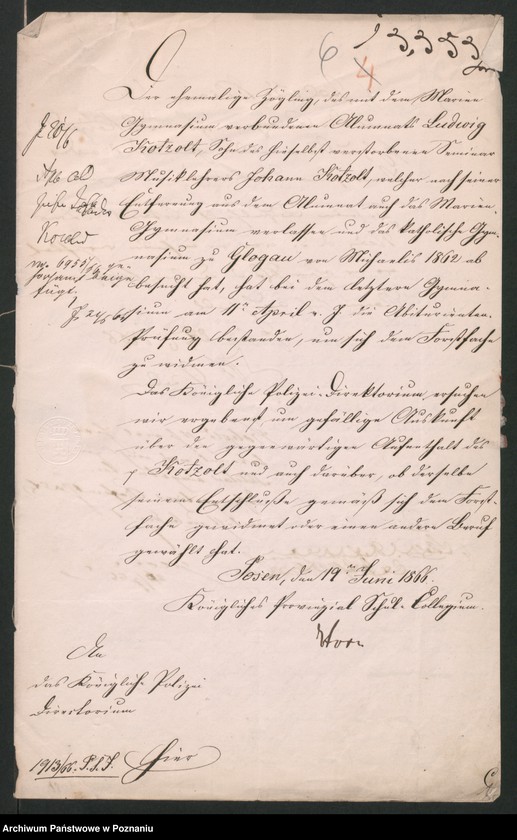 6
4
13,353
Der ehemalige Zögling, des mit dem Marien
Gymnasium verbundenen Alumnats Ludwig
Kotzolt, Sohn des hierselbst verstorbenen Seminar
Musiklehrers Johann Kotzolt, welcher nach seiner
Entfernung aus dem Alumnat auch das Marien-
Gymnasium verlassen und das katholische Gym-
nasium zu Glogau von Michaelis 1862 ab
besucht hat, hat bei dem letztern Gymna-
sium am 11. April v. J. die Abiturienten-
Prüfung bestanden, um sich dem Forstfache
zu widmen.
Das Königliche Polizei-Direktorium ersuchen
wir ergebenst um gefällige Auskunft
über den gegenwärtigen Aufenthalt des
p Kotzolt und auch darüber, ob derselbe
seinem Entschlusse gemäß sich dem Forst-
fache gewidmet oder einen andern Beruf
gewählt hat.
Posen, den 19ten Juni 1866.
Königliches Provinzial Schul-Collegium.
An
das Königliche Polizei
Directorium
1913/66. P.S.J. Hier
Archiwum Państwowe w Poznaniu